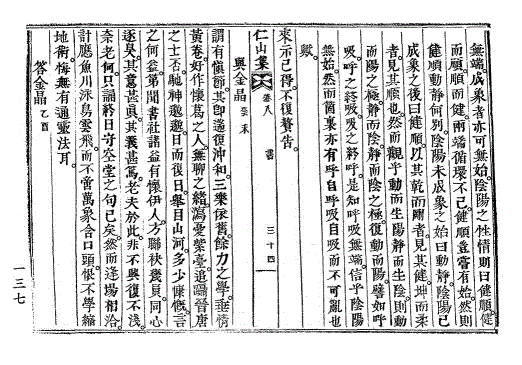 無端成象者亦可無始陰陽之性情則曰健順健
而順順而健兩端循環不已健順豈嘗有始然則
健順動靜何別陰陽未成象之始曰動靜陰陽已
成象之後曰健順以其乾而剛者見其健坤而柔
者見其順也然而觀乎動而生陽靜而生陰則動
而陽之極靜而陰靜而陰之極復動而陽譬如呼
吸呼之終吸吸之終呼是知呼吸無端信乎陰陽
無始然而箇裏亦有呼自呼吸自吸而不可亂也
歟
來示已得不復贅告
仁山集 卷八 書 三十四
與金晶 癸未
謂有愼節其卽遄復沖和三樂依舊餘力之學垂情
黃卷好作懷葛之人無聊之緖瀉憂紫臺追嘯晉唐
之士否馳神遡遡日而復日擧目山河多少慷慨言
之何益第聞書社諸益有懷伊人方聯袂幾員同心
逐臭其意甚眞其義甚篤老夫於此非不興復不淺
柰老何只誦終日守空堂之句已矣然而逢場相洽
計應魚川泳鳥雲飛而不啻萬象含口頭恨不學縮
地術悔無有通靈法耳
答金晶 乙酉
一三七